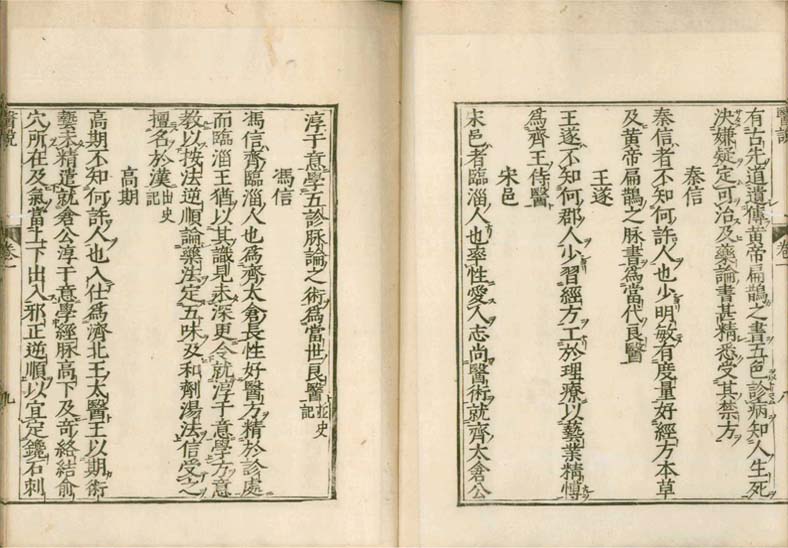 有古先道遺傳黃帝扁鵲之書五色診病知人生死
決嫌疑定可治及藥論書甚精悉受其禁方
秦信
秦信者不知何許人也少明敏有度量好經方本草
及黃帝扁鵲之脉書爲當代良醫
王遂
王遂不知何郡人少習經方工於理療以藝業精博
爲齊王侍醫
宋邑
宋邑者臨淄人也率性愛人志尚醫術就齊太倉公
醫說
卷一
八
淳于意學五診脉論之術爲當世良醫並史記
馮信
馮信齊臨淄人也爲齊太倉長性好醫方精於診處
而臨淄王猶以其識見未深更令就淳于意學方意
教以按法逆順論藥法定五味及和劑湯法信受之
擅名於漢出史記
高期
高期不知何許人也入仕爲濟北王太醫王以期術
藝未精遣就倉公淳于意學經脉高下及奇絡結俞
穴所在及氣當上下出入邪正逆順以宜定鑱石刺
醫說
卷一
九